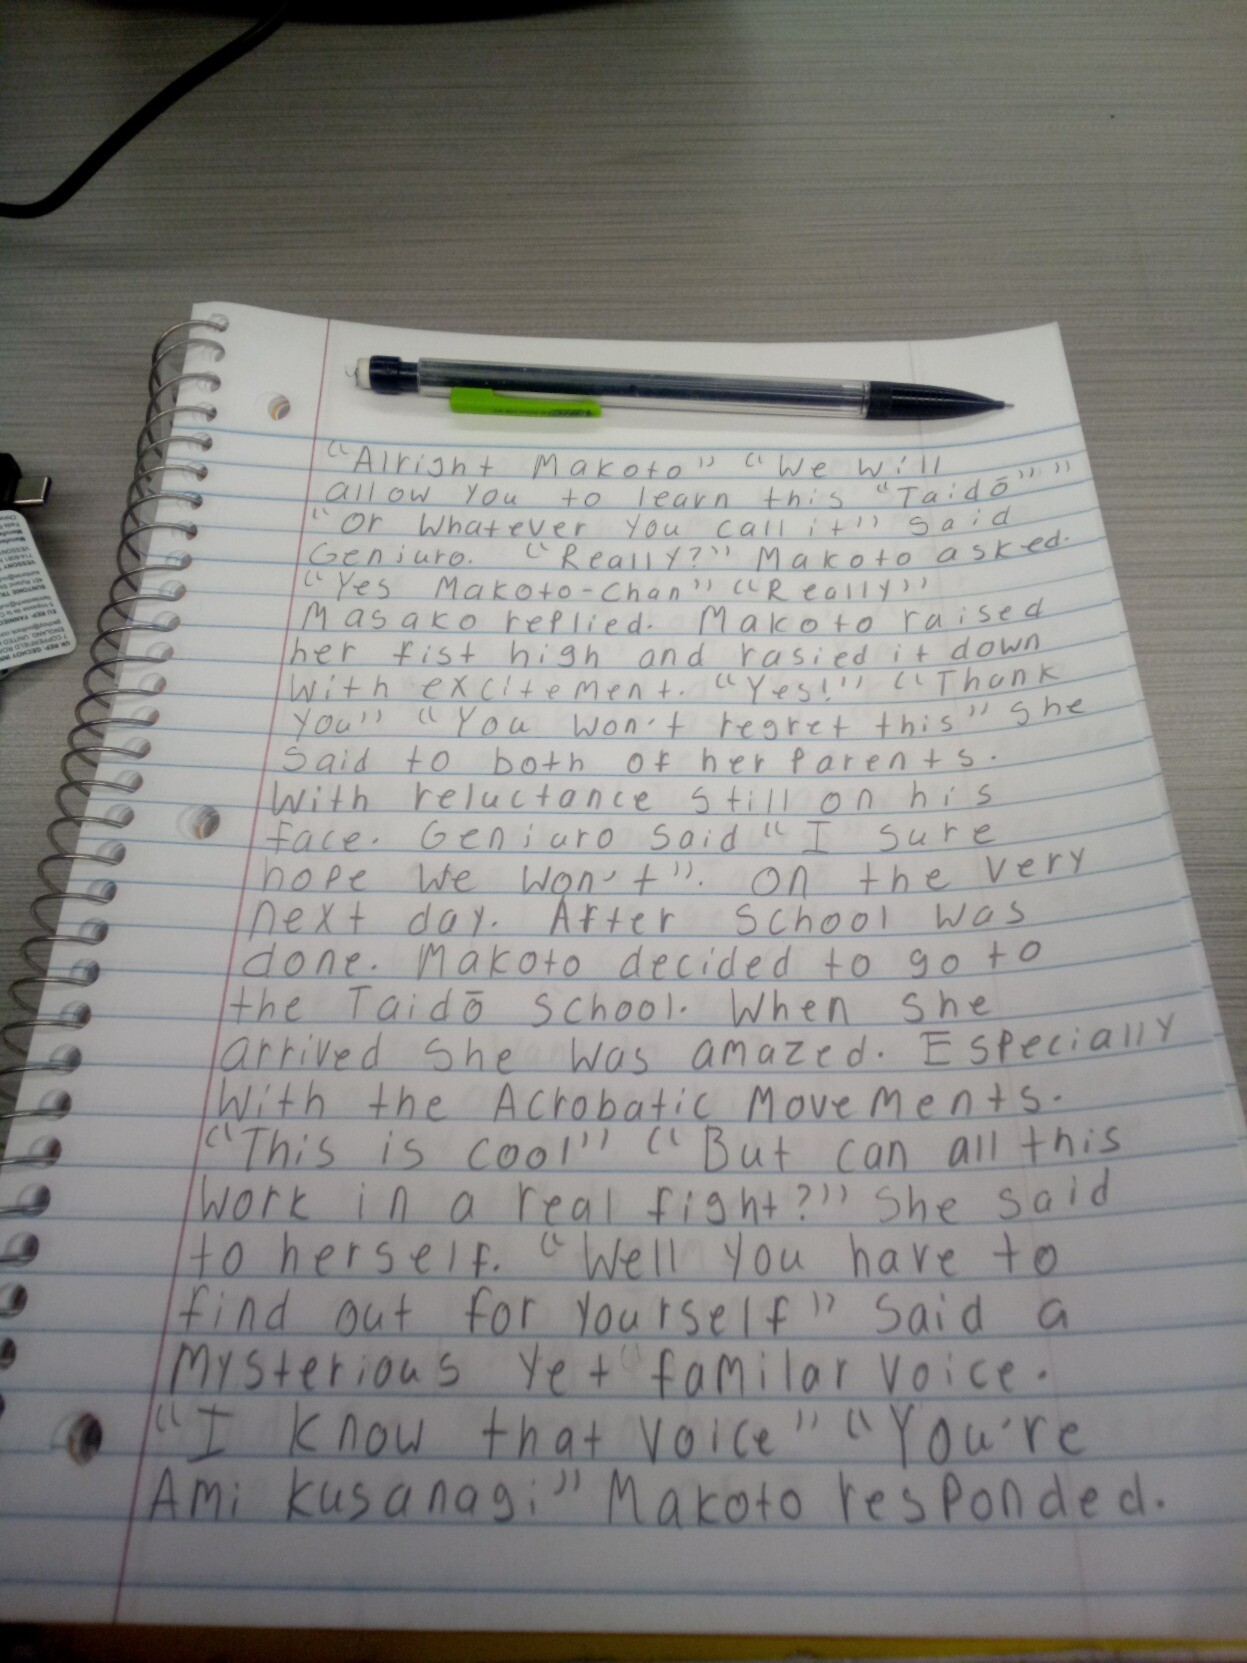 “Alright Makoto” “We will
allow you to learn this “Taidō””
“Or whatever you call it” said
Geniuro. “Really?” Makoto asked.
“Yes Makoto-Chan” “Really”
Masako replied. Makoto raised
her fist high and rasied it down
with excitement. “Yes!” “Thank
you” “You won't regret this” she
said to both of her parents.
With reluctance still on his
face. Geniuro said “I sure
hope we won't”. On the very
next day. After school was
done. Makoto decided to go to
the Taidō school. When she
arrived she was amazed. Especially
with the Acrobatic Movements.
“This is cool” “But can all this
work in a real fight?” She said
to herself. “Well you have to
find out for yourself” said a
mysterious yet familar voice.
“I know that voice” “You're
Ami Kusanagi” Makoto responded.